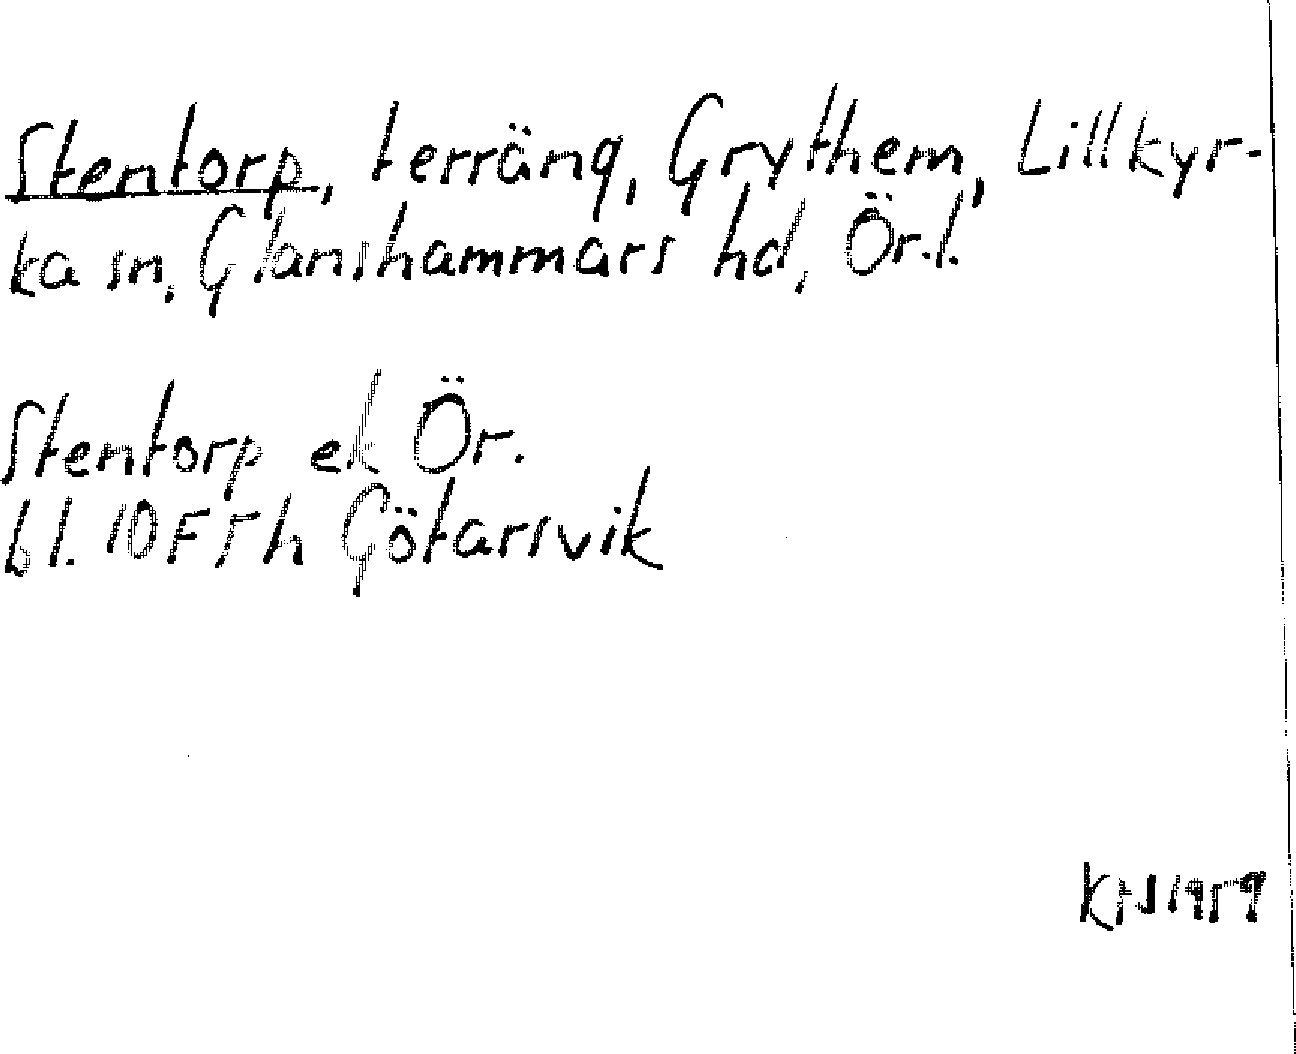 Stentorp, terräng, Grythem, Lillkyr-
ka sn, Glanshammars hd, Ör.l.
Stentorp ek Ör.
bl. 10F5h Götarsvik
KNS 1959